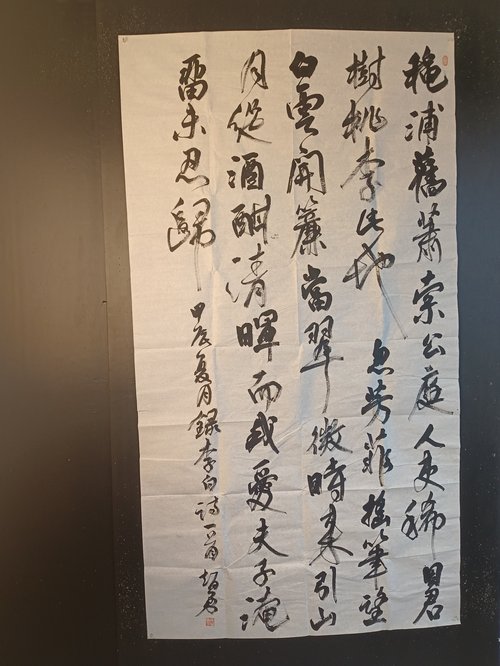 穐浦舊蕭索公庭人吏稀因君
樹桃李此地忽芳菲搖筆望
白雲開簾當翠微時來引山
月縱酒酣清暉而我愛夫子淹
留未忍歸
甲辰夏月錄李白詩一首